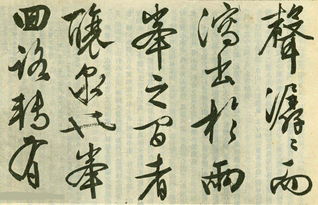 聲潺々而
瀉出於兩
峯之間者
釀泉也峯
回路轉有